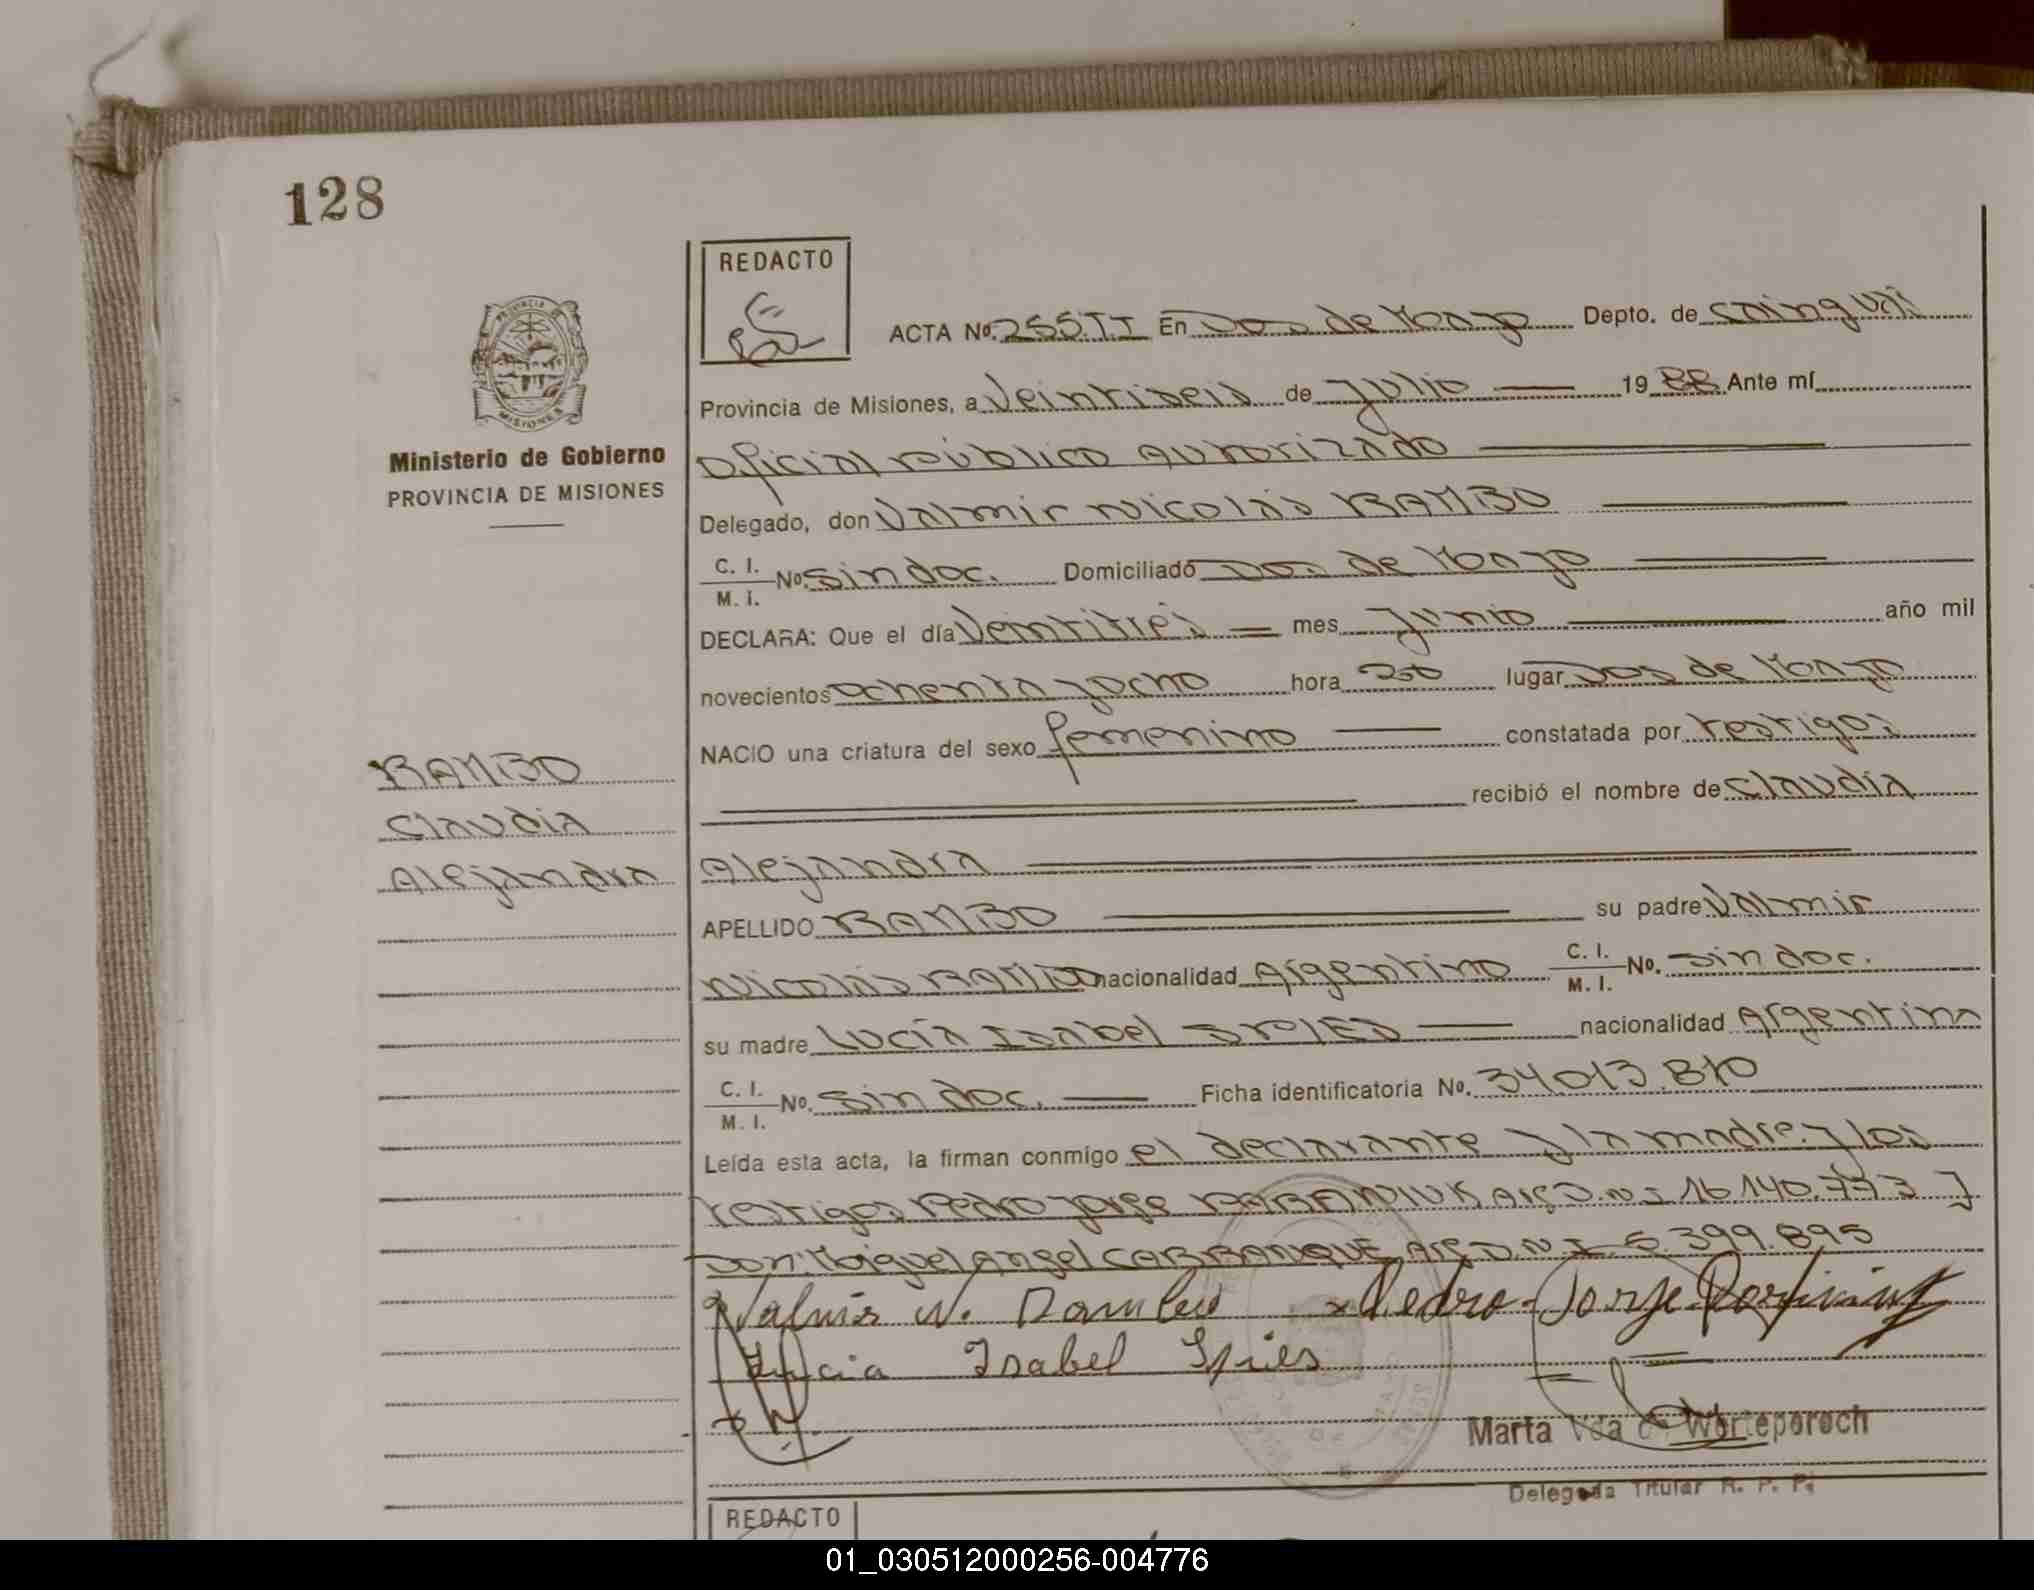 128
REDACTO
ACTA Nº. 255.TI En Dos de Mayo Depto. de Cainguás
Provincia de Misiones, a Veintiseis de Julio 1988 Ante mí
Oficial público Autorizado
Ministerio de Gobierno
PROVINCIA DE MISIONES
Delegado, don Valmir Nicolás RAMBO
C. I.
M. I. Nº. sin doc. Domiciliado Dos de Mayo
DECLARA: Que el día Veintitres mes Junio año mil
novecientos ochenta y ocho hora 200 lugar Dos de Mayo
NACIO una criatura del sexo femenino constatada por testigos
recibió el nombre de Claudia
Alejandra
RAMBO
Claudia
Alejandra
APELLIDO RAMBO su padre Valmir
Nicolás RAMBO nacionalidad Argentino C. I.
M. I. No. sin doc.
su madre Lucía Isabel SPIES nacionalidad Argentina
C. I.
M. I. No. sin doc. Ficha identificatoria No. 34.013.810
Leída esta acta, la firman conmigo el declarante y la madre. y los
testigos Pedro Jorge Arg D.N.I 16.140.773 y
Don: Miguel Angel CARBANQUE Arg D.N.I. 6.399.895
Valmir N. Rambo Pedro Jorge
Lucia Isabel Spies
Marta Vda de
Delegada Titular R. P. P.
REDACTO
01_030512000256-004776